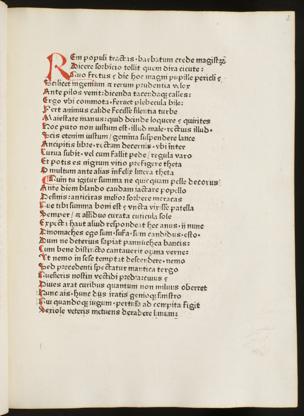 REm populi tractas · barbatum crede magistrum
Dicere sorbicio tollit quem dira cicute:
Quo fretus e dic hoc magni pupille pericli e
Scilicet ingenium et rerum prudentia velox
Ante pilos venit: dicenda tacendaque calles:
Ergo vbi commota: feruet plebecula bile:
Fert animus calide fecisse silentia turbe
Maiestate manus: quid deinde loquere e quirites
Hoc puto non iustum est: illud male: rectius illud·
Scis etenim iustum gemina suspendere lance
Ancipitis libre: rectum decernis: vbi inter
Curua subit· vel cum fallit pede: regula varo
Et potis es nigrum vitio prefigere theta
Quin tu igitur summa ne quicquam pelle decorus
Ante diem blando caudam iactare popello
Desinis: anticiras melior sorbere meracas
Que tibi summa boni est e vncta vixisse patella
Semper: et assiduo curata cuticula sole
Expecta haut aliud respondeat hec anus· ii nunc
Dinomaches ego sum· sufla· sum candidus· esto·
Dum ne deterius sapiat pannucea baucis:
Cum bene discincto cantauerit opima verne:
Vt nemo in sese temptat descendere· nemo
Sed precedenti spectatur mantica tergo
Quesieris nostin vectidi predia cuius e
Diues arat curibus quantum non miluus oberret
Hunc ais· hunc diis iratis genioque sinistro
Qui quandoque iugum· pertusa ad compita figit
Seriole veterem metuens deradere limum: